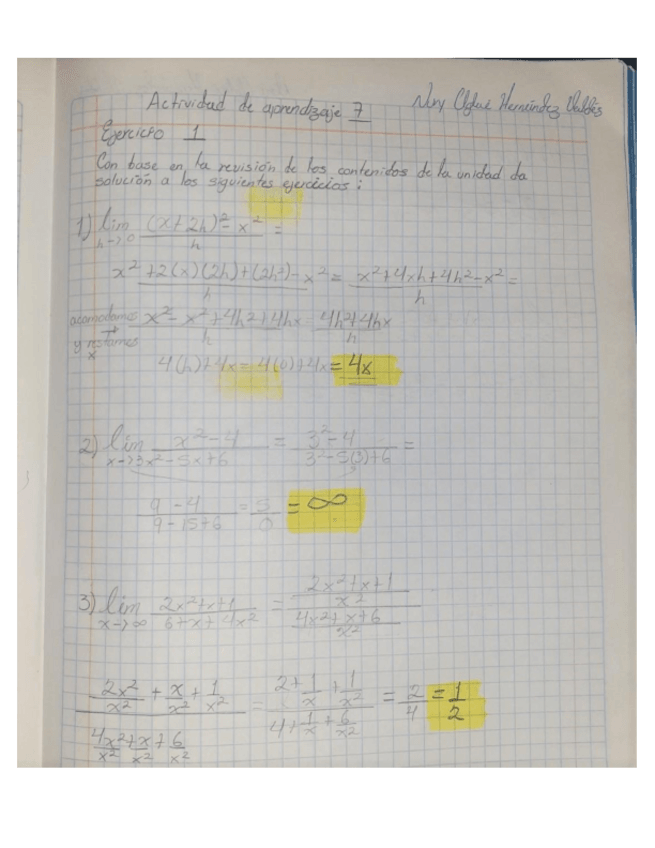 Actividad de aprendizaje 7
Hernández Valdés
Ejercicio 1
Con base en la revisión de los contenidos de la unidad da
solución a los siguientes ejercicios:
1) lim h→0 (x+2h)²-x² / h =
x²+2(x)(2h)+(2h)²-x² / h = x²+4xh+4h²-x² / h =
acomodamos y restamos x → x²-x²+4h²+4hx / h 4h²+4hx / h
4(h)+4x = 4(0)+4x = 4x
2) lim x→3 x²-4 / x²-5x+6 = 3²-4 / 3²-5(3)+6 =
9-4 / 9-15+6 = 5/0 = ∞
3) lim x→∞ 2x²+x+1 / 6+x+4x² = 2x²+x+1 / x² / 4x²+x+6 / x²
2x²/x² + x/x² + 1/x² / 4x²/x² + x/x² + 6/x² = 2+1/x+1/x² / 4+1/x+6/x² = 2/4 = 1/2